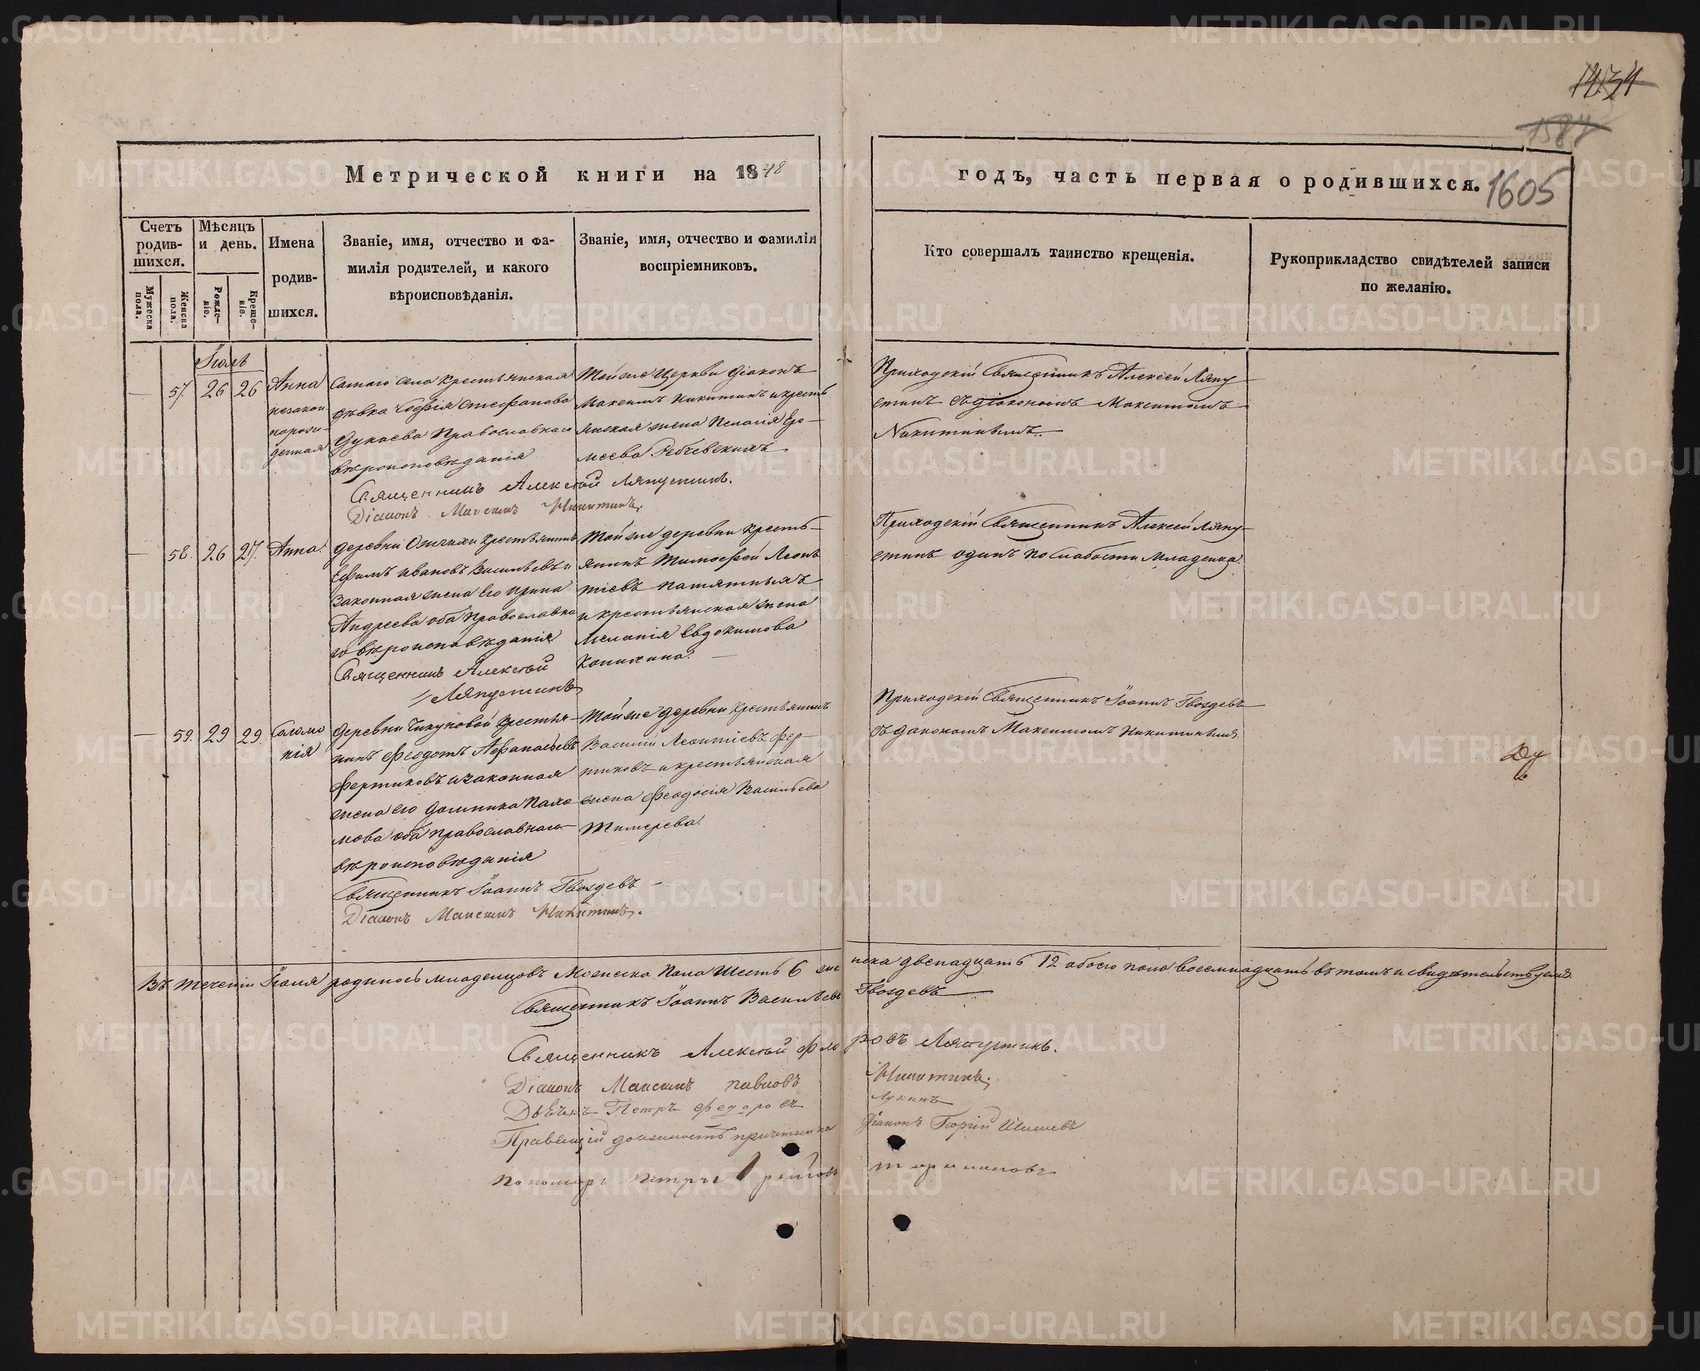 1434
1587
1605
Метрической книги на 1848
годъ, часть первая о родившихся.
Счетъ родив-шихся.
Мужеска пола.
Женска пола.
Мѣсяцъ и день.
Рожде-ніе.
Креще-ніе.
Имена родив-шихся.
Званіе, имя, отчество и фа-
милія родителей, и какого
вѣроисповѣданія.
Званіе, имя, отчество и фамилія
воспріемниковъ.
Кто совершалъ таинство крещенія.
Рукоприкладство свидѣтелей записи
по желанію.
Іюль
57. 26 26 Анна
незакон
норож-
денная
самаго села крестьянская
дѣвка Софія Стефанова
Православнаго
вѣроисповѣданія
Священникъ Алексѣй Ляпустинъ.
Діаконъ Максимъ Никитинъ.
Той же Церкви діаконъ
Максимъ Никитинъ и кресть
янская жена Пелагія
Приходскій Священникъ Алексѣй Ляпу
стинъ съ діакономъ Максимомъ
Никитинымъ.
58. 26 27. Анна
деревни крестьянинъ
Ефимъ Ивановъ Васильевъ и
законная жена его Ирина
Андреева оба Православна
го вѣроисповѣданія
Священникъ Алексѣй
Ляпустинъ
Той же деревни кресть-
янинъ Тимофей Леонъ
тіевъ Патятныхъ
и крестьянская жена
Меланія Евдокимова
Приходскій Священникъ Алексѣй Ляпу-
стинъ одинъ по слабости младенца.
59. 29 29. Соломо
нія
деревни Чипуковой крестья-
нинъ Феодотъ Афанасьевъ
Фертиковъ и законная
жена его Домника Пахо
мова оба православнаго
вѣроисповѣданія
Священникъ Іоаннъ Гвоздевъ
Діаконъ Максимъ Никитинъ.
Той же деревни крестьянинъ
Василій Леонтіевъ Фер-
тиковъ и крестьянская
жена Феодосія Васильева
Приходскій Священникъ Іоаннъ Гвоздевъ
съ діакономъ Максимомъ Никитинымъ.
Въ теченіи Іюля родилось младенцовъ Мужеска Пола Шесть 6 жен
ска двенадцать 12 обоего пола восемнадцать въ томъ и свидѣтельствуемъ
Священникъ Іоаннъ Васильевъ Гвоздевъ
Священникъ Алексѣй Фло ровъ Ляпустинъ.
Діаконъ Максимъ Павловъ Никитинъ.
Дьячекъ Петръ Федоровъ Лукинъ
Правящій должность причетника Діаконъ Шишевъ
Пономарь Петръ
METRIKI.GASO-URAL.RU